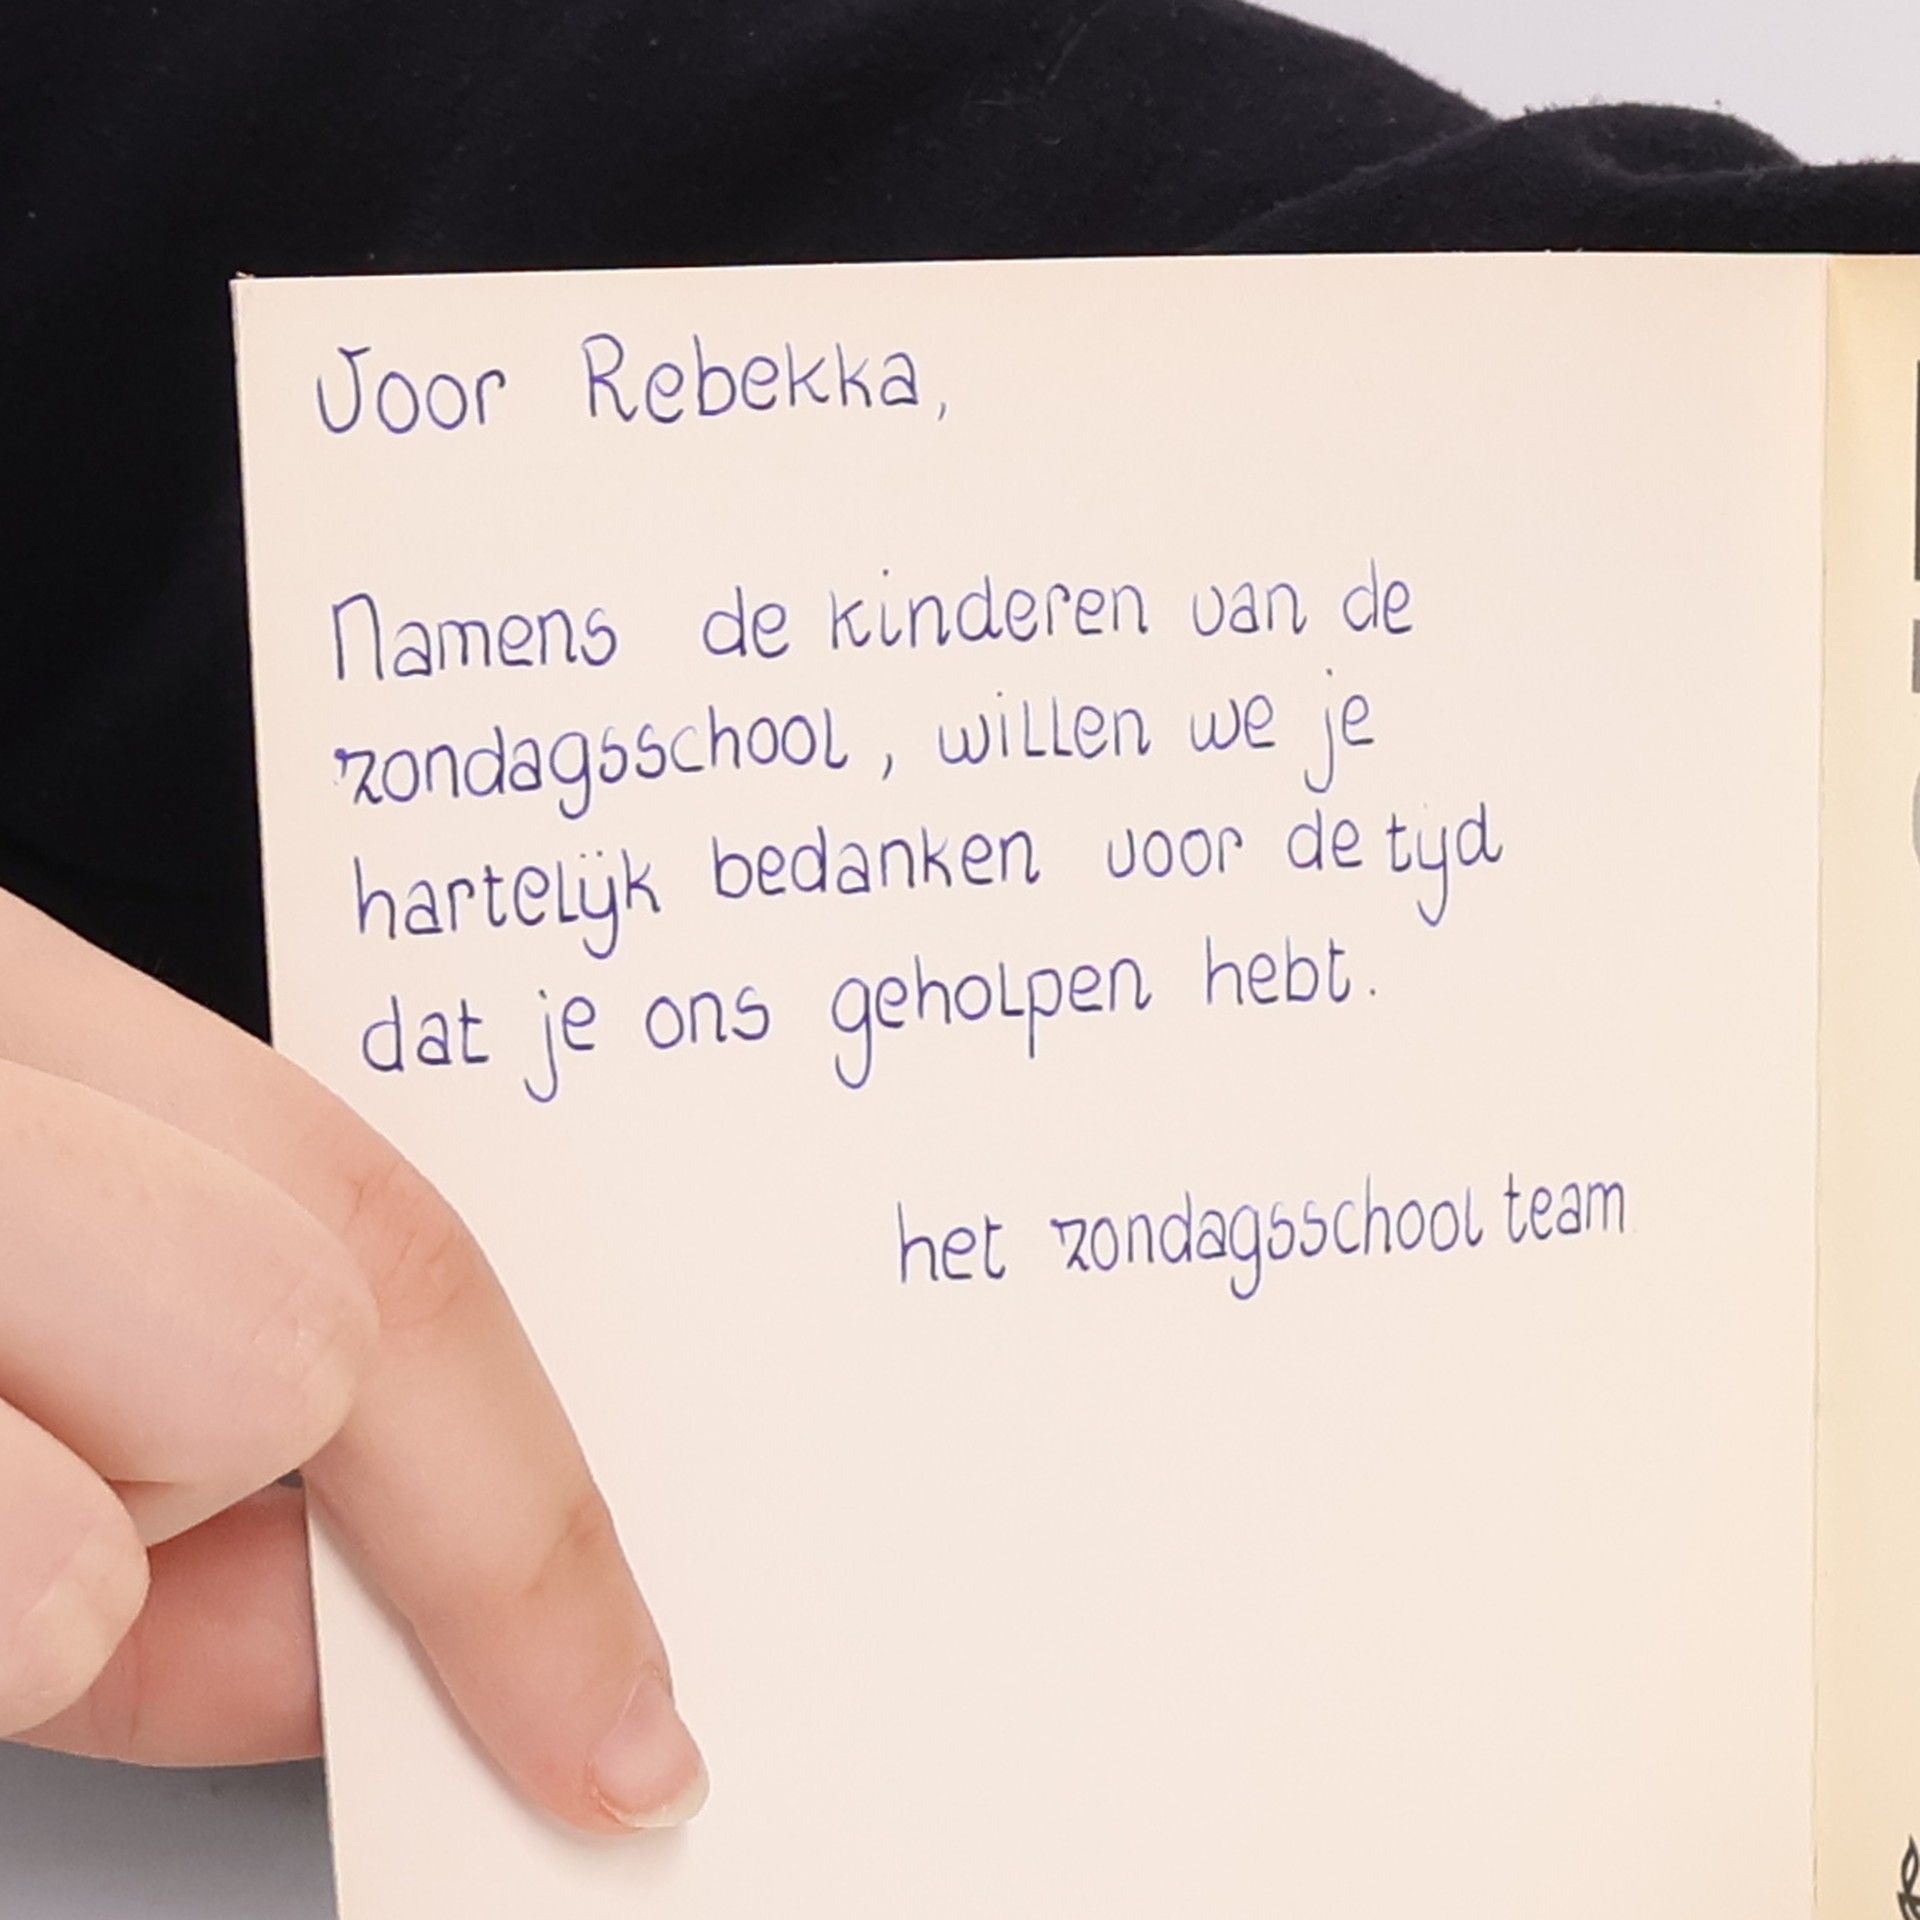 Voor Rebekka,
Namens de kinderen van de
zondagsschool, willen we je
hartelijk bedanken voor de tijd
dat je ons geholpen hebt.
het zondagsschool team